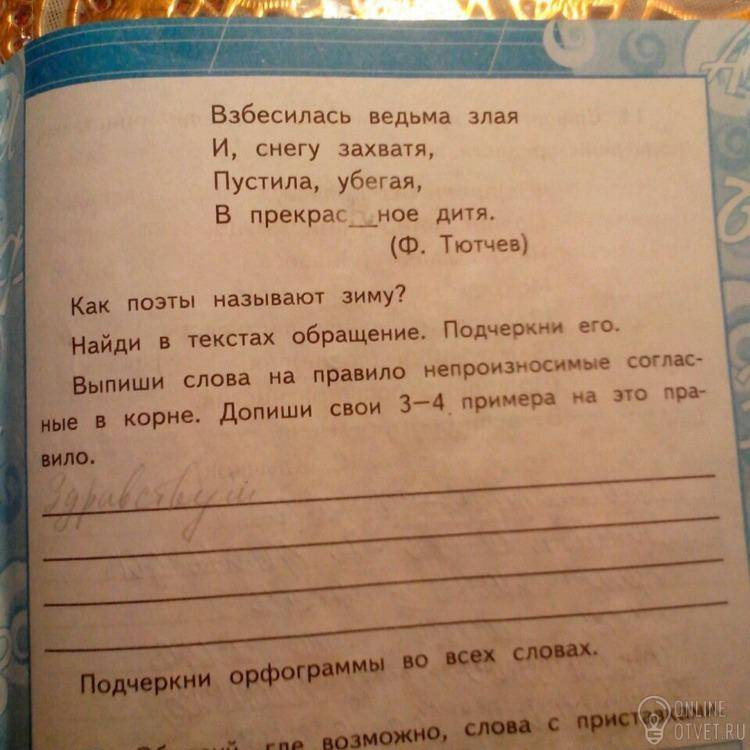 Взбесилась ведьма злая
И, снегу захватя,
Пустила, убегая,
В прекрас__ное дитя.
(Ф. Тютчев)
Как поэты называют зиму?
Найди в текстах обращение. Подчеркни его.
Выпиши слова на правило непроизносимые соглас-
ные в корне. Допиши свои 3–4 примера на это пра-
вило.
Здравствуй
Подчеркни орфограммы во всех словах.
где возможно, слова с
ONLINE
OTVET.RU